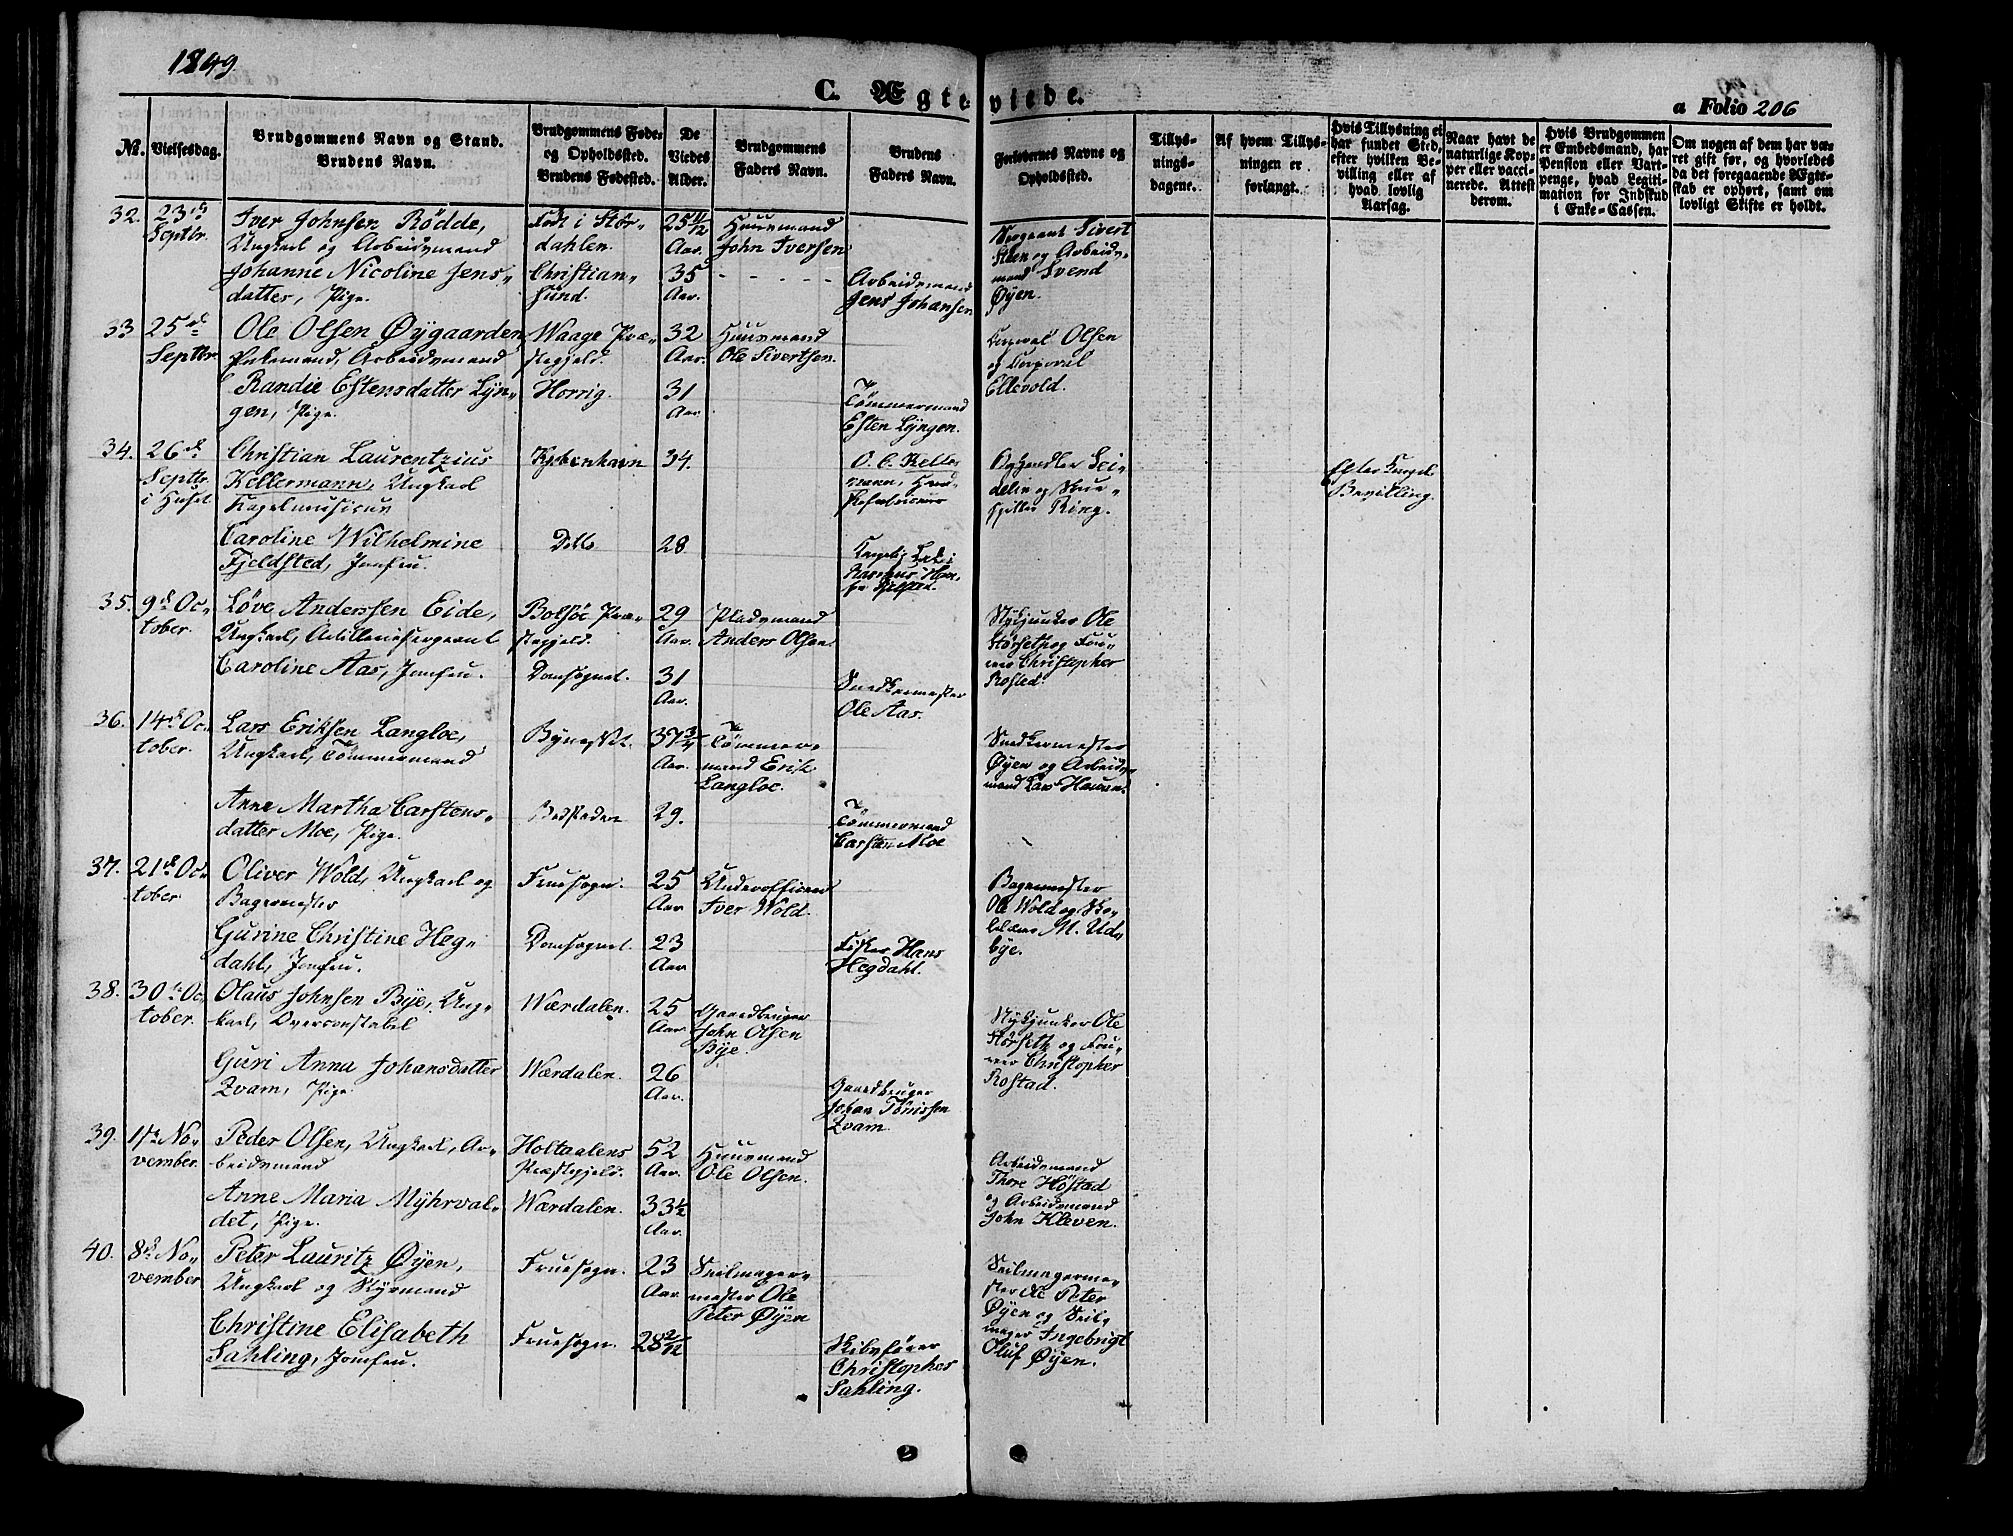 1849
C. Ægteviede.
a Folio 206
No.
Vielsesdag.
Brudgommens Navn og Stand.
Brudens Navn.
Brudgommens Føde-
og Opholdssted.
Brudens Fødested.
De
Viedes
Alder.
Brudgommens
Faders Navn.
Brudens
Faders Navn.
Forlovernes Navne og
Opholdssted.
Tillys-
nings-
dagene.
Af hvem Tillys-
ningen er
forlangt.
Hvis Tillysning ei
har fundet Sted,
efter hvilken Be-
villing eller af
hvad lovlig
Aarsag.
Naar havt de
naturlige Kop-
per eller vacci-
nerede. Attest
derom.
Hvis Brudgommen
er Embedsmand, har
Pension eller Vart-
penge, hvad Legiti-
mation for Indskud
i Enke-Cassen.
Om nogen af dem har væ-
ret gift før, og hvorledes
da det foregaaende Ægte-
skab er ophørt, samt om
lovligt Skifte er holdt.
32.
23de
Septbr.
Iver Johnsen Rödde,
Ungkarl og Arbeidsmand
Födt i Stör-
dahlen.
25 11/12
Aar.
Huusmand
John Iversen
Sergeant Sivert
Steen og Arbeids-
mand Svend
Øyen.
Johanne Nicoline Jens-
datter, Pige.
Christian-
sund.
35
Aar.
Arbeidsmand
Jens Johansen
33
25de
Septbr.
Ole Olsen Øygaarden
Enkemand, Arbeidsmand
Waage Præ-
stegjeld.
32
Aar.
Huusmand
Ole Sivertsen.
Olsen
og Corporal
Ellevold.
Randie Estensdatter Lyn-
gen, Pige.
Horrig.
31
Aar.
Tömmermand
Esten Lyngen.
34.
26de
Septbr.
i Huset
Christian Laurentzius
Kellermann, Ungkarl
Kapelmusicus
Kjöbenhavn
34.
O. C. Keller
mann,
Boghandler Sei-
delin og Skue-
spiller Ring.
Efter Kongel
Bevilling.
Caroline Wilhelmine
Fjeldsted, Jomfru.
Dito
28
Kongelig
Rasmus
35.
9de Oc-
tober.
Löve Anderssen Eide,
Ungkarl, Artilleriesergeant
Bolsöe Præ-
stegjeld.
29
Aar.
Pladsmand
Anders Olsen
Stykjunker Ole
Störseth og Fou-
reer Christopher
Rosted.
Caroline Aas, Jomfru.
Domsognet.
31
Aar.
Snedkermester
Ole Aas.
36.
14de Oc-
tober.
Lars Eriksen Langloe,
Ungkarl, Tömmermand
Bynesset.
37 3/4
Aar.
Tömmer-
mand Erik
Langloe.
Snedkermester
Øyen og Arbeids-
mand Lars
Anne Martha Carstens-
datter Moe, Pige.
29.
Tömmermand
Carsten Moe
37.
21de Oc-
tober.
Oliver Wold, Ungkarl og
Bagermester
Fruesogn.
25
Aar
Underofficeer
Iver Wold.
Bagermester
Ole Wold og
M. Ud-
bye.
Gurine Christine Heg-
dahl, Jomfru.
Domsognet.
23
Aar
Fisker Hans
Hegdahl.
38.
30te Oc-
tober.
Olaus Johnsen Bye, Ung-
karl, Overconstabel
Wærdalen.
25
Aar
Gaardbruger
John Olsen
Bye.
Stykjunker Ole
Störseth og Fou-
reer Christopher
Rostad.
Guri Anna Johansdatter
Zvam, Pige
Wærdalen.
26
Aar.
Gaardbruger
Johan Tönissen
Zvam.
39.
1ste No-
vember.
Peder Olsen, Ungkarl, Ar-
beidsmand
Holtaalens
Præstegjeld.
52
Aar.
Huusmand
Ole Olsen.
Arbeidsmand
Thore Höstad
og Arbeidsmand
John Kleven.
Anne Maria Myhrval-
det, Pige.
Wærdalen.
33 1/2
Aar.
40.
8de No-
vember
Peter Lauritz Øyen,
Ungkarl og Styrmand
Fruesogn.
23
Aar
Seilmager-
mester Ole
Peter Øyen
Seilmagerme-
ster Ole Peter
Øyen og Seil-
mager Ingebrigt
Oluf Øyen.
Christine Elisabeth
Sahling, Jomfru.
Fruesogn.
28 2/12
Skibsförer
Christopher
Sahling.